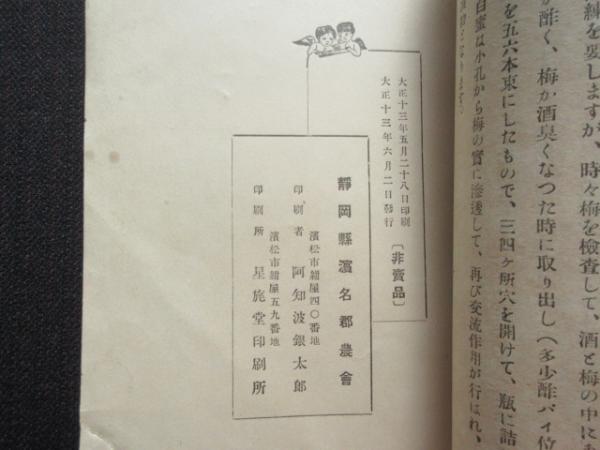 練を要しますが、時々梅を檢査して、酒と梅の中に
が酢く、梅が酒臭くなつた時に取り出し(多少酢パイ位
を五六本束にしたもので、三四ヶ所穴を開けて、瓶に詰
白蜜は小孔から梅の實に滲透して、再び交流作用が行はれ、
大正十三年五月二十八日印刷
大正十三年六月二日發行
〔非賣品〕
靜岡縣濱名郡農會
濱松市紺屋四〇番地
印刷者 阿知波銀太郎
濱松市紺屋五九番地
印刷所 星施堂印刷所